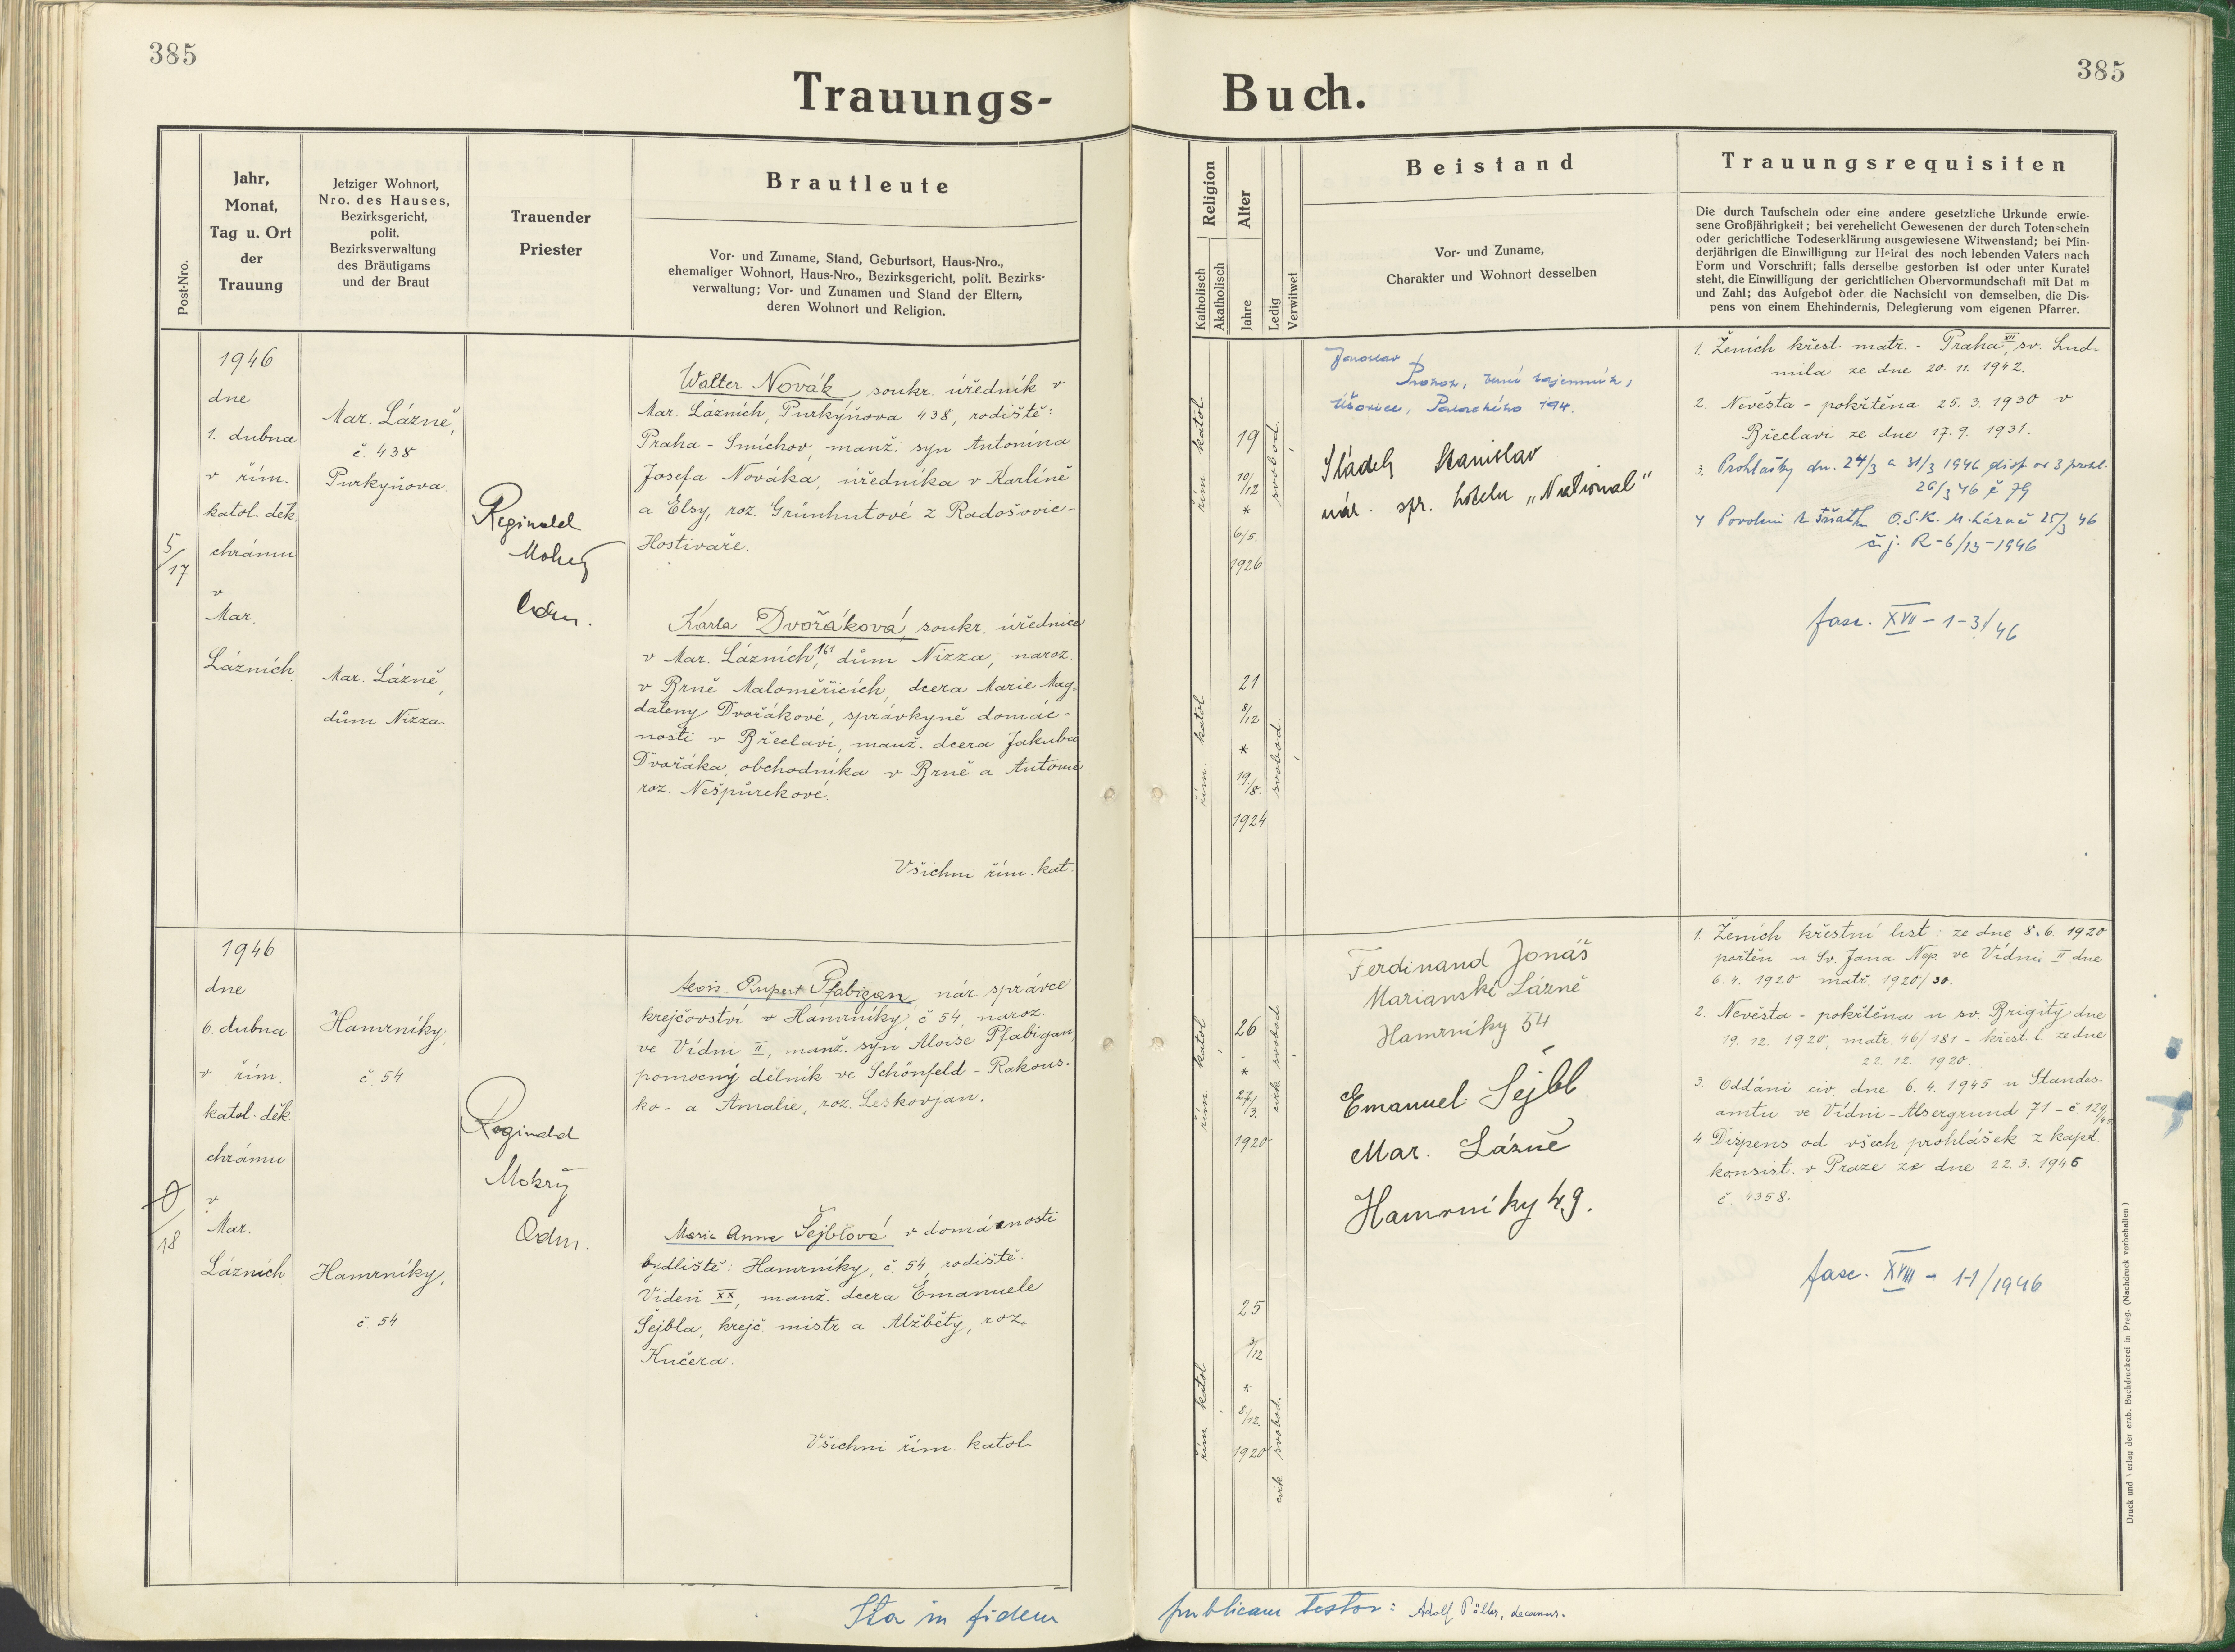 385
385
Trauungs-
Buch.
Post-Nro.
Jahr,
Monat,
Tag u. Ort
der
Trauung
Jetziger Wohnort,
Nro. des Hauses,
Bezirksgericht,
polit.
Bezirksverwaltung
des Bräutigams
und der Braut
Trauender
Priester
Brautleute
Vor- und Zuname, Stand, Geburtsort, Haus-Nro.,
ehemaliger Wohnort, Haus-Nro., Bezirksgericht, polit. Bezirks-
verwaltung; Vor- und Zunamen und Stand der Eltern,
deren Wohnort und Religion.
Religion
Katholisch
Akatholisch
Alter
Jahre
Ledig
Verwitwet
Beistand
Vor- und Zuname,
Charakter und Wohnort desselben
Trauungsrequisiten
Die durch Taufschein oder eine andere gesetzliche Urkunde erwie-
sene Großjährigkeit; bei verehelicht Gewesenen der durch Totenschein
oder gerichtliche Todeserklärung ausgewiesene Witwenstand; bei Min-
derjährigen die Einwilligung zur Heirat des noch lebenden Vaters nach
Form und Vorschrift; falls derselbe gestorben ist oder unter Kuratel
steht, die Einwilligung der gerichtlichen Obervormundschaft mit Dat m
und Zahl; das Aufgebot oder die Nachsicht von demselben, die Dis-
pens von einem Ehehindernis, Delegierung vom eigenen Pfarrer.
5/17
1946
dne
1. dubna
v řím.
katol. děk.
chrámu
v
Mar.
Lázních.
Mar. Lázně,
č. 438
Purkyňova.
Mar. Lázně,
dům Nizza.
Reginald
Mokrý
Adm.
Walter Novák, soukr. úředník v
Mar. Lázních, Purkyňova 438, rodiště:
Praha - Smíchov, manž. syn Antonína
Josefa Nováka, úředníka v Karlíně
a Elsy, roz. Grünhutové z Radošovic-
Hostivaře.
Karla Dvořáková, soukr. úřednice
v Mar. Lázních, 161 dům Nizza, naroz.
v Brně Maloměřicích, dcera Marie Mag-
daleny Dvořákové, správkyně domác-
nosti v Břeclavi, manž. dcera Jakuba
Dvořáka, obchodníka v Brně a Antonie
roz. Nešpůrekové.
Všichni řím. kat.
řím. katol
19
10/12
*
6/5.
1926
svobod.
řím. katol
21
8/12
*
19/8.
1924
svobod.
Jaroslav
Prokop,
Úšovice, 194.
Sládek Stanislav
nár. spr. hotelu „National"
1. Ženich křest. matr. - Praha XII, sv. Lud-
mila ze dne 20. 11. 1942.
2. Nevěsta - pokřtěna 25. 3. 1930 v
Břeclavi ze dne 17. 9. 1931.
3. Prohlášky dn. 24/3 a 31/3 1946 disp. od 3 prohl.
26/3 46 č 79
4 Povolení k sňatku O.S.K. M. Lázně 25/3 46
č. j. R-6/13-1946
fasc. XVII - 1-3/46
0/18
1946
dne
6. dubna
v řím.
katol. děk.
chrámu
v
Mar.
Lázních
Hamrníky,
č. 54
Hamrníky,
č. 54
Reginald
Mokrý
Adm.
Alois Rupert Pfabigan, nár. správce
krejčovství v Hamrníky, č 54, naroz.
ve Vídni II, manž. syn Aloise Pfabigan,
pomocný dělník ve Schönfeld - Rakous-
ko - a Amalie, roz. Leskovjan.
Marie Anna Šejblová v domácnosti
bydliště: Hamrníky, č. 54, rodiště:
Vídeň XX, manž. dcera Emanuele
Šejbla, krejč. mistr a Alžběty, roz.
Kučera.
Všichni řím. katol.
řím. katol
26
-
*
27/3.
1920
cirk. svobod
řím katol
25
3/12
*
8/12.
1920
cirk svobod.
Ferdinand Jonáš
Marianské Lázně
Hamrníky 54
Emanuel Sejbl
Mar. Lázně
Hamrníky 49.
1. Ženich křestní list: ze dne 8. 6. 1920
pokřtěn u Sv. Jana Nep. ve Vídni II dne
6. 4. 1920 matr. 1920/30.
2. Nevěsta - pokřtěna u sv. Brigity dne
19. 12. 1920, matr. 46/181 - křest. l. ze dne
22. 12. 1920.
3. Oddáni civ. dne 6. 4. 1945 u Standes-
amtu ve Vídni - Alsergrund 71 - č. 129/45
4. Dispens od všech prohlášek z kapit.
konsist. v Praze ze dne 22. 3. 1946
č. 4358.
fasc. XVIII - 1-1/1946
Ita in fidem
publicam testor: Adolf decanus.
Druck und Verlag der erzb. Buchdruckerei in Prag. (Nachdruck vorbehalten)